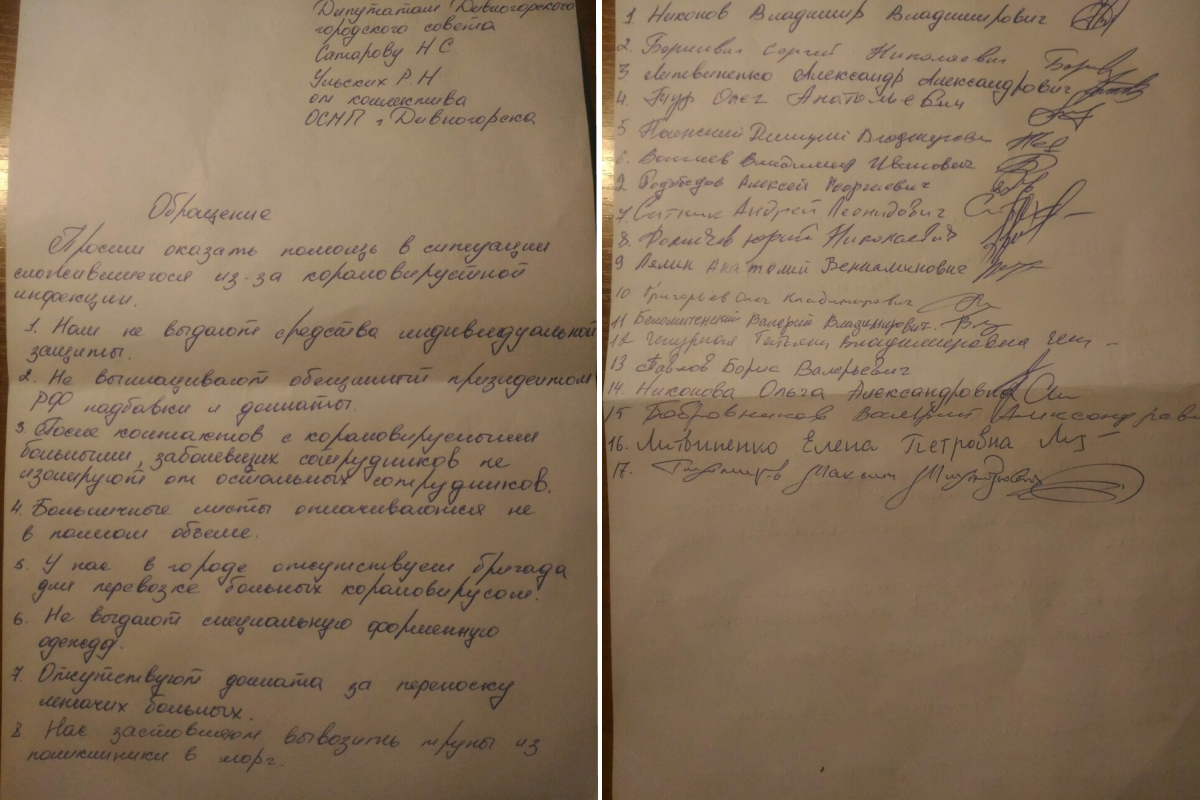 Депутатам Дивногорского
городского совета
Сатарову Н С
Ульских Р. Н
от коллектива
ОСМП г Дивногорска
Обращение
Просим оказать помощь в ситуации
сложившегося из-за короновирустной
инфекции.
1. Нам не выдают средства индивидуальной
защиты.
2. Не выплащивают обещанный призидентом
РФ надбавки и доплаты.
3. После контактов с короновирусными
больными, заболевших сотрудников не
изолируют от остальных сотрудников.
4. Больничные листы оплачиваются не
в полном объеме.
5. У нас в городе отсутствует бригада
для перевозке больных короновирусом.
6. Не выдают специальную форменную
одежду.
7. Отсутствуют доплата за переноску
лежачих больных.
8 Нас заставляют вывозить трупы из
поликлиники в морг.
1. Никонов Владимир Владимирович
2. Сергей Николаевич
3 Литвиненко Александр Александрович
4. Олег Анатольевич
5 Дмитрий Владимирович
6. Владимир Иванович
2 Алексей Георгиевич
7. Ситник Андрей Леонидович
8. Юрий Николаевич
9 Лялин Анатолий Вениаминович
10 Григорьев Олег Владимирович
11 Валерий Владимирович.
12 Татьяна Владимировна
13 Павлов Борис Валерьевич
14. Никонова Ольга Александровна
15 Бобровников Валерий Александрович
16. Литвиненко Елена Петровна
17. Максим